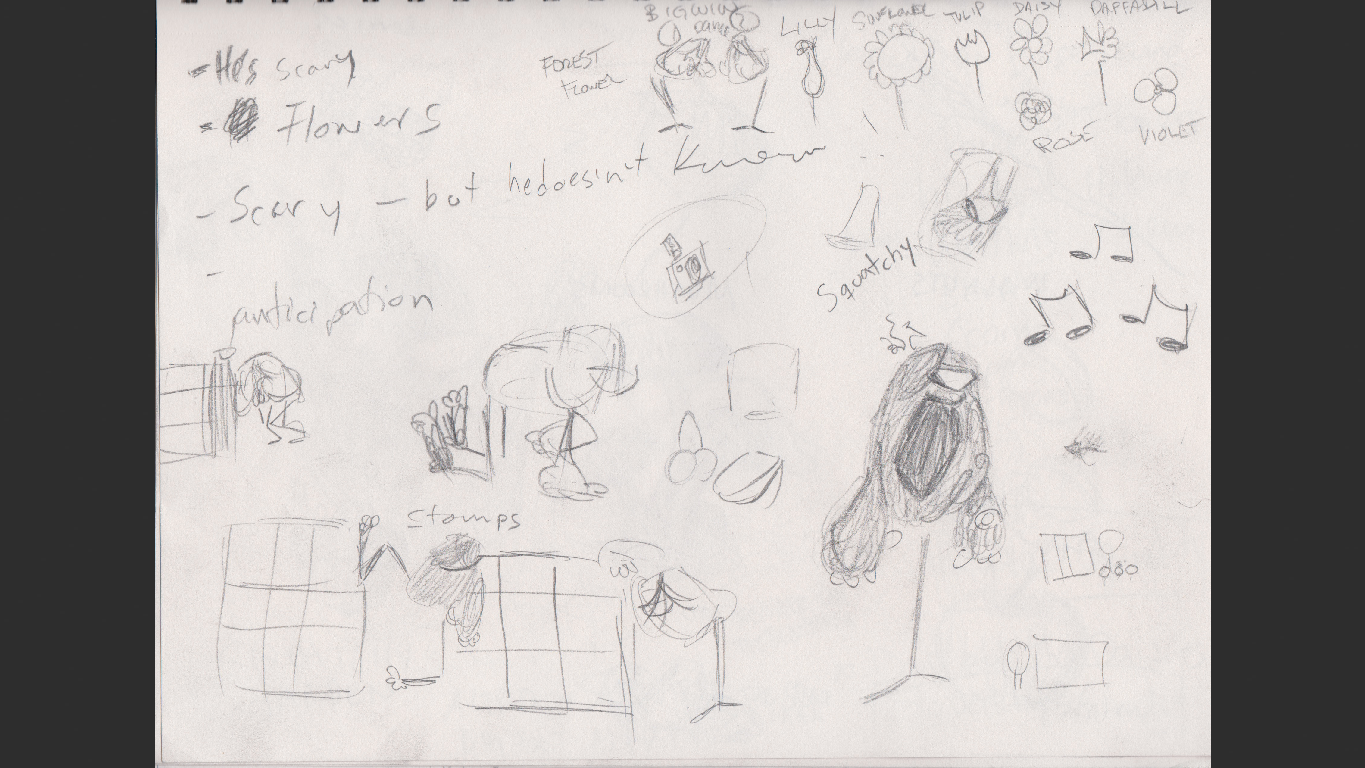 - He's scary
- Flowers
- Scary - but he doesn't know
-
anticipation
FOREST
FLOWER
BIG WIN
① ②
LILLY
SUNFLOWER
TULIP
DAISY
DAFFADILL
ROSE
VIOLET
Squatchy
stomps